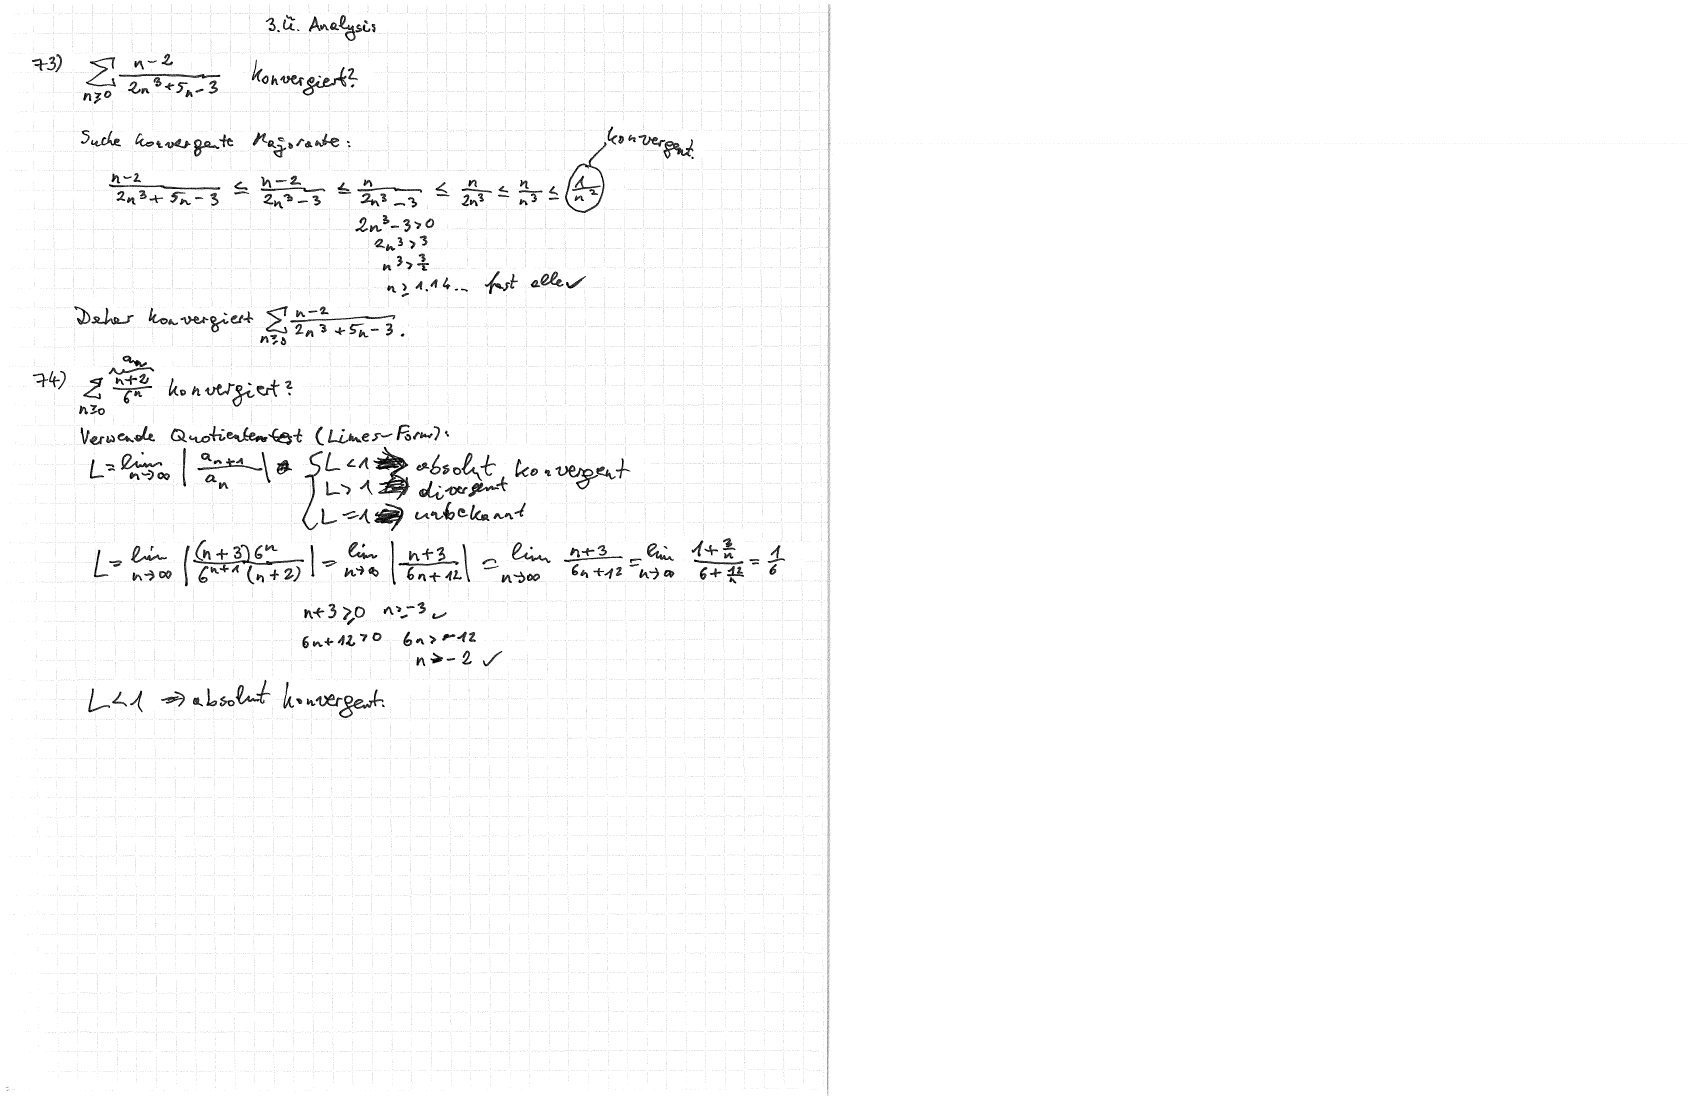 3.Ü. Analysis
73) ∑_{n≥0} (n-2)/(2n³+5n-3) konvergiert?
Suche konvergente Majorante:
konvergent.
(n-2)/(2n³+5n-3) ≤ (n-2)/(2n³-3) ≤ n/(2n³-3) ≤ n/(2n³) ≤ n/n³ ≤ 1/n²
2n³-3>0
2n³>3
n³>3/2
n≥1.14... fast alle✓
Daher konvergiert ∑_{n≥0} (n-2)/(2n³+5n-3).
a_n
74) ∑_{n≥0} (n+2)/6ⁿ konvergiert?
Verwende Quotiententest (Limes-Form):
L = lim_{n→∞} |a_{n+1}/a_n| { L<1 ⇒ absolut konvergent
L>1 ⇒ divergent
L=1 ⇒ unbekannt
L = lim_{n→∞} |(n+3)6ⁿ/(6ⁿ⁺¹(n+2))| = lim_{n→∞} |(n+3)/(6n+12)| = lim_{n→∞} (n+3)/(6n+12) = lim_{n→∞} (1+3/n)/(6+12/n) = 1/6
n+3≥0 n≥-3 ✓
6n+12>0 6n>-12
n>-2 ✓
L<1 ⇒ absolut konvergent.